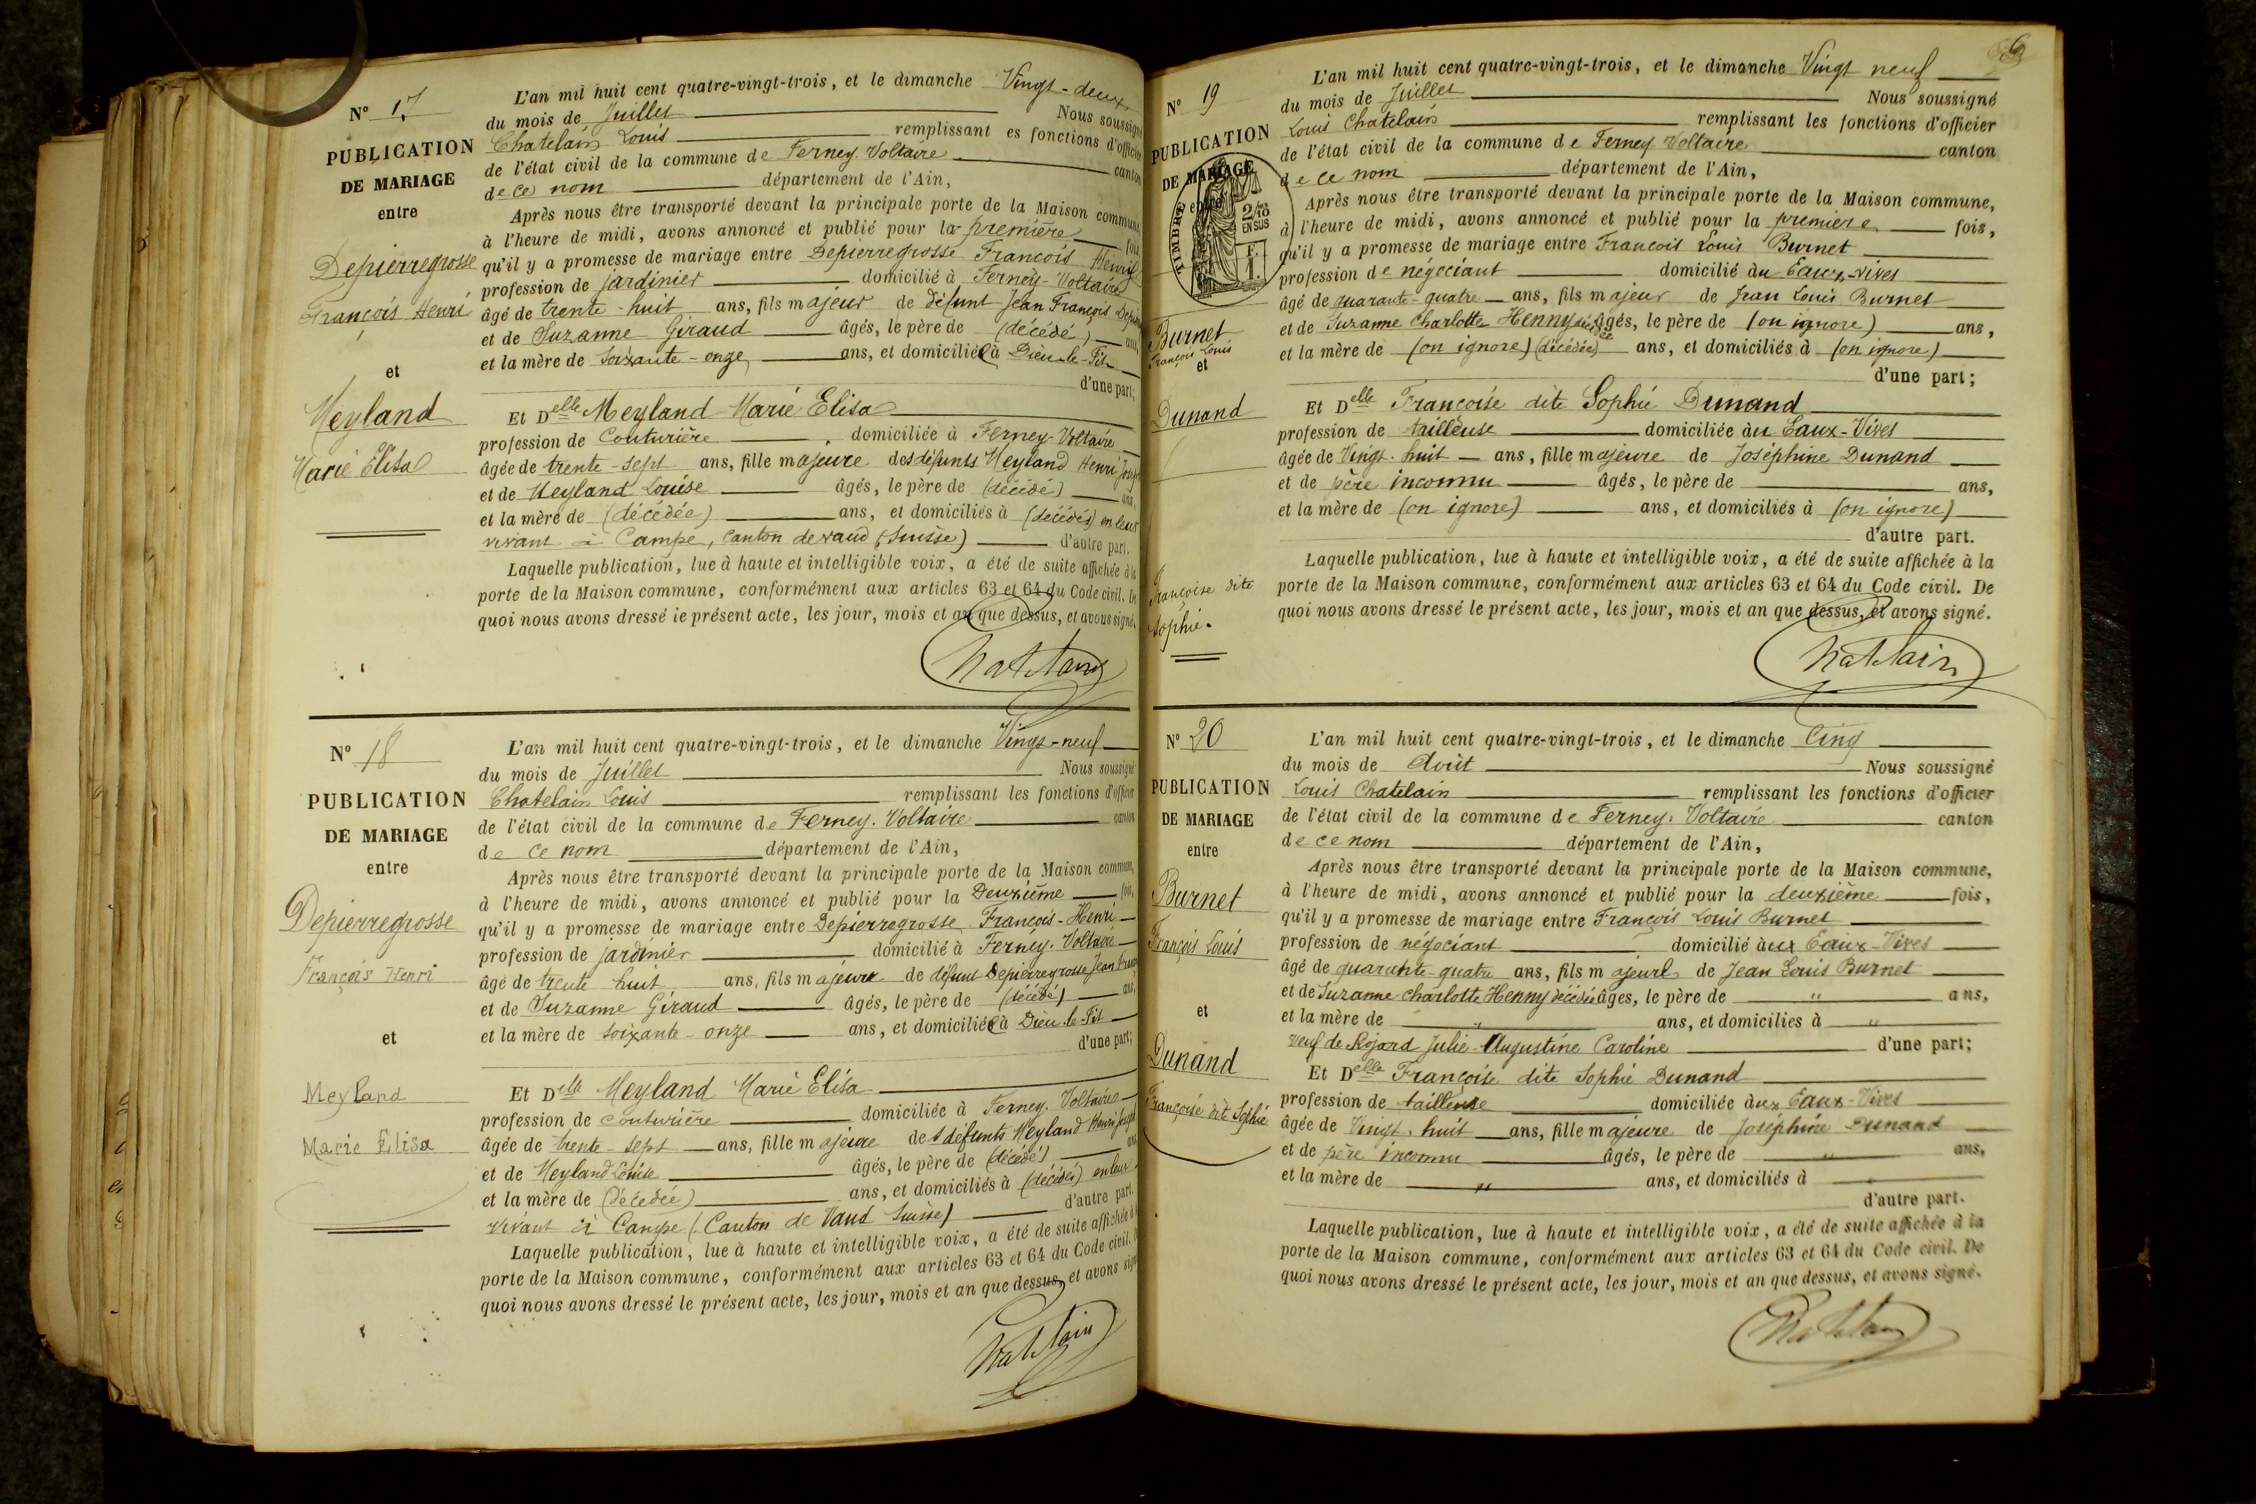 N° 17
PUBLICATION
DE MARIAGE
entre
Depierregrosse
François Henri
et
Meyland
Marie Elisa
L'an mil huit cent quatre-vingt-trois, et le dimanche Vingt-deux
du mois de Juillet Nous soussigné
Chatelain Louis remplissant es fonctions d'officier
de l'état civil de la commune de Ferney Voltaire canton
de ce nom département de l'Ain,
Après nous être transporté devant la principale porte de la Maison commune,
à l'heure de midi, avons annoncé et publié pour la première fois,
qu'il y a promesse de mariage entre Depierregrosse François Henri
profession de jardinier domicilié à Ferney-Voltaire
âgé de trente-huit ans, fils majeur de défunt Jean François
et de Suzanne Giraud âgés, le père de (décédé) ans,
et la mère de soixante-onze ans, et domiciliée à Dieu-le-Fit
d'une part;
Et Delle Meyland Marie Elisa
profession de Couturière domiciliée à Ferney-Voltaire
âgée de trente-sept ans, fille majeure des défunts Meyland Henri Joseph
et de Meyland Louise âgés, le père de (décédé) ans,
et la mère de (décédée) ans, et domiciliés à (décédés) en leur
vivant à Campe, canton de vaud (Suisse) d'autre part.
Laquelle publication, lue à haute et intelligible voix, a été de suite affichée à la
porte de la Maison commune, conformément aux articles 63 et 64 du Code civil. De
quoi nous avons dressé le présent acte, les jour, mois et an que dessus, et avons signé.
Chatelain
N° 18
PUBLICATION
DE MARIAGE
entre
Depierregrosse
François Henri
et
Meyland
Marie Elisa
L'an mil huit cent quatre-vingt-trois, et le dimanche Vingt-neuf
du mois de Juillet Nous soussigné
Chatelain Louis remplissant les fonctions d'officier
de l'état civil de la commune de Ferney-Voltaire canton
de ce nom département de l'Ain,
Après nous être transporté devant la principale porte de la Maison commune,
à l'heure de midi, avons annoncé et publié pour la Deuxième fois,
qu'il y a promesse de mariage entre Depierregrosse François-Henri
profession de jardinier domicilié à Ferney-Voltaire
âgé de trente huit ans, fils majeur de défunt Depierregrosse Jean
et de Suzanne Giraud âgés, le père de (décédé) ans,
et la mère de soixante-onze ans, et domiciliée à Dieu-le-Fit
d'une part;
Et Delle Meyland Marie Elisa
profession de couturière domiciliée à Ferney-Voltaire
âgée de trente-sept ans, fille majeure des défunts Meyland Henri Joseph
et de Meyland Louise âgés, le père de (décédé) ans,
et la mère de (décédée) ans, et domiciliés à (décédés) en leur
vivant à Campe (Canton de Vaud Suisse) d'autre part.
Laquelle publication, lue à haute et intelligible voix, a été de suite affichée à la
porte de la Maison commune, conformément aux articles 63 et 64 du Code civil.
quoi nous avons dressé le présent acte, les jour, mois et an que dessus, et avons signé
Chatelain
6
N° 19
PUBLICATION
DE MARIAGE
entre
TIMBRE
2/10
EN SUS
Burnet
François Louis
et
Dunand
Françoise dite
Sophie.
L'an mil huit cent quatre-vingt-trois, et le dimanche Vingt neuf
du mois de Juillet Nous soussigné
Louis Chatelain remplissant les fonctions d'officier
de l'état civil de la commune de Ferney Voltaire canton
de ce nom département de l'Ain,
Après nous être transporté devant la principale porte de la Maison commune,
à l'heure de midi, avons annoncé et publié pour la première fois,
qu'il y a promesse de mariage entre François Louis Burnet
profession de négociant domicilié au Eaux-vives
âgé de quarante-quatre ans, fils majeur de Jean Louis Burnet
et de Suzanne Charlotte Henny âgés, le père de (on ignore) ans,
et la mère de (on ignore) (décédée) ans, et domiciliés à (on ignore)
d'une part;
Et Delle Françoise dite Sophie Dunand
profession de tailleuse domiciliée au Eaux-Vives
âgée de Vingt-huit ans, fille majeure de Joséphine Dunand
et de père inconnu âgés, le père de ans,
et la mère de (on ignore) ans, et domiciliés à (on ignore)
d'autre part.
Laquelle publication, lue à haute et intelligible voix, a été de suite affichée à la
porte de la Maison commune, conformément aux articles 63 et 64 du Code civil. De
quoi nous avons dressé le présent acte, les jour, mois et an que dessus, et avons signé.
Chatelain
N° 20
PUBLICATION
DE MARIAGE
entre
Burnet
François Louis
et
Dunand
Françoise dite Sophie
L'an mil huit cent quatre-vingt-trois, et le dimanche Cinq
du mois de Août Nous soussigné
Louis Chatelain remplissant les fonctions d'officier
de l'état civil de la commune de Ferney-Voltaire canton
de ce nom département de l'Ain,
Après nous être transporté devant la principale porte de la Maison commune,
à l'heure de midi, avons annoncé et publié pour la deuxième fois,
qu'il y a promesse de mariage entre François Louis Burnet
profession de négociant domicilié aux Eaux-Vives
âgé de quarante-quatre ans, fils majeur de Jean Louis Burnet
et de Suzanne Charlotte Henny décédée âgés, le père de " ans,
et la mère de " ans, et domiciliés à "
veuf de Rojard Julie-Augustine Caroline d'une part;
Et Delle Françoise dite Sophie Dunand
profession de tailleuse domiciliée aux Eaux-Vives
âgée de Vingt-huit ans, fille majeure de Joséphine Dunand
et de père inconnu âgés, le père de " ans,
et la mère de " ans, et domiciliés à
d'autre part.
Laquelle publication, lue à haute et intelligible voix, a été de suite affichée à la
porte de la Maison commune, conformément aux articles 63 et 64 du Code civil. De
quoi nous avons dressé le présent acte, les jour, mois et an que dessus, et avons signé.
Chatelain